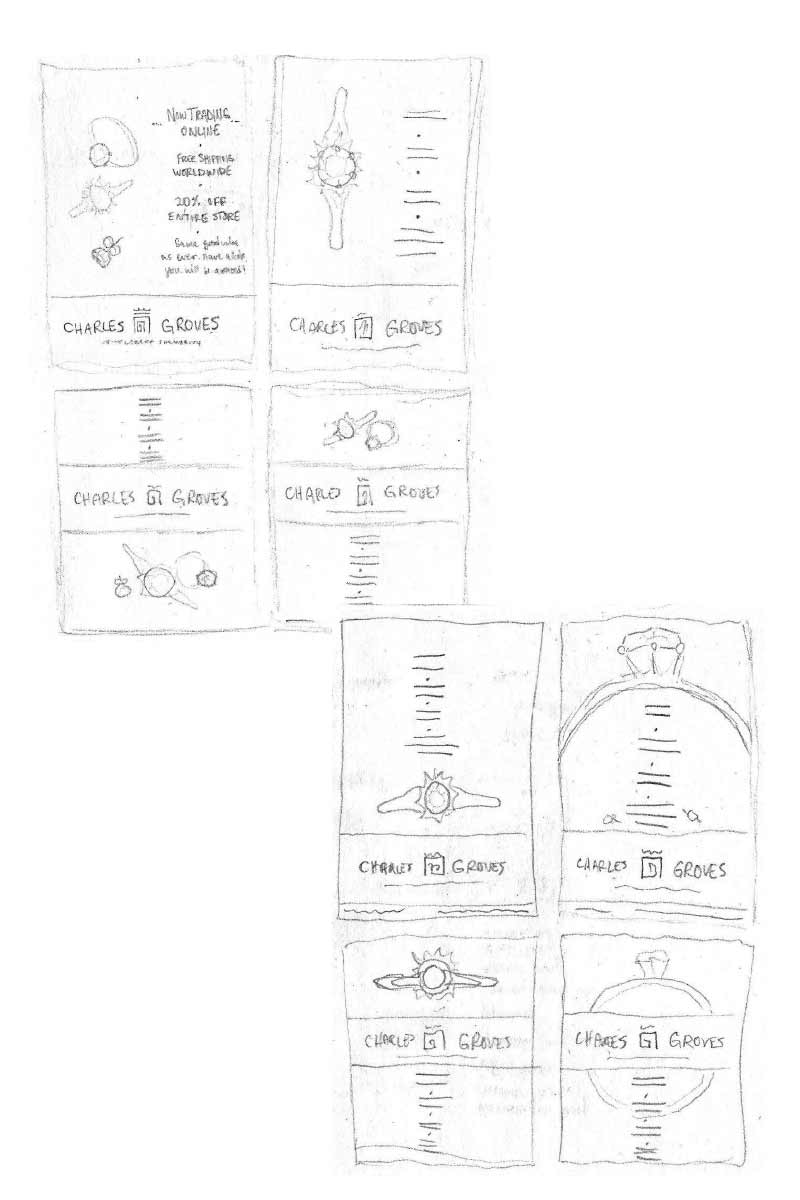 NOW TRADING
ONLINE
FREE SHIPPING
WORLDWIDE
20% OFF
ENTIRE STORE
Same good value
as ever. Have a look,
you will be amazed!
CHARLES G GROVES
CHARLES GROVES
CHARLES G GROVES
CHARLES GROVES
CHARLES GROVES
OR
CHARLES GROVES
CHARLES G GROVES
CHARLES G GROVES